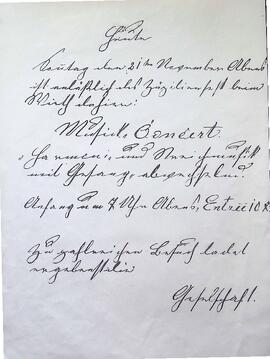 Heute
Sontag den 21ten November Abens
ist anläßlich des Zäzilienfest beim
Wirth dahier:
Musick, Concert.
Harmoni, und Streichmusik
mit Gesang, abwechselnd.
Anfang um 7 Uhr Abens, Entree 10 x
Zu zahlreichen Besuch ladet
ergebenst ein
Geselschaft.